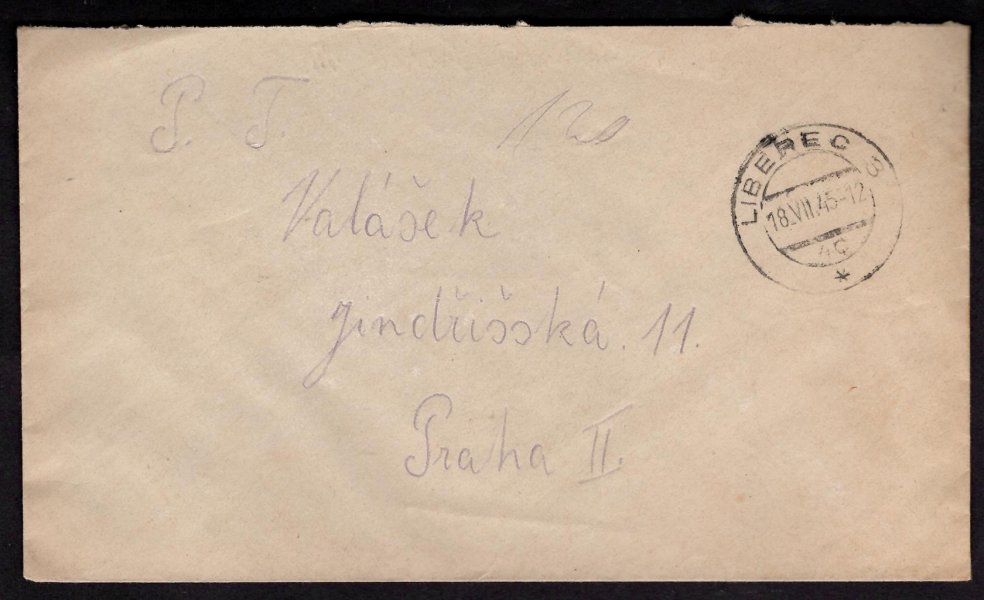 P. T.
120
Valášek
Jindřišská. 11.
Praha II.
LIBEREC 3
18.VII.45-12
4c
*